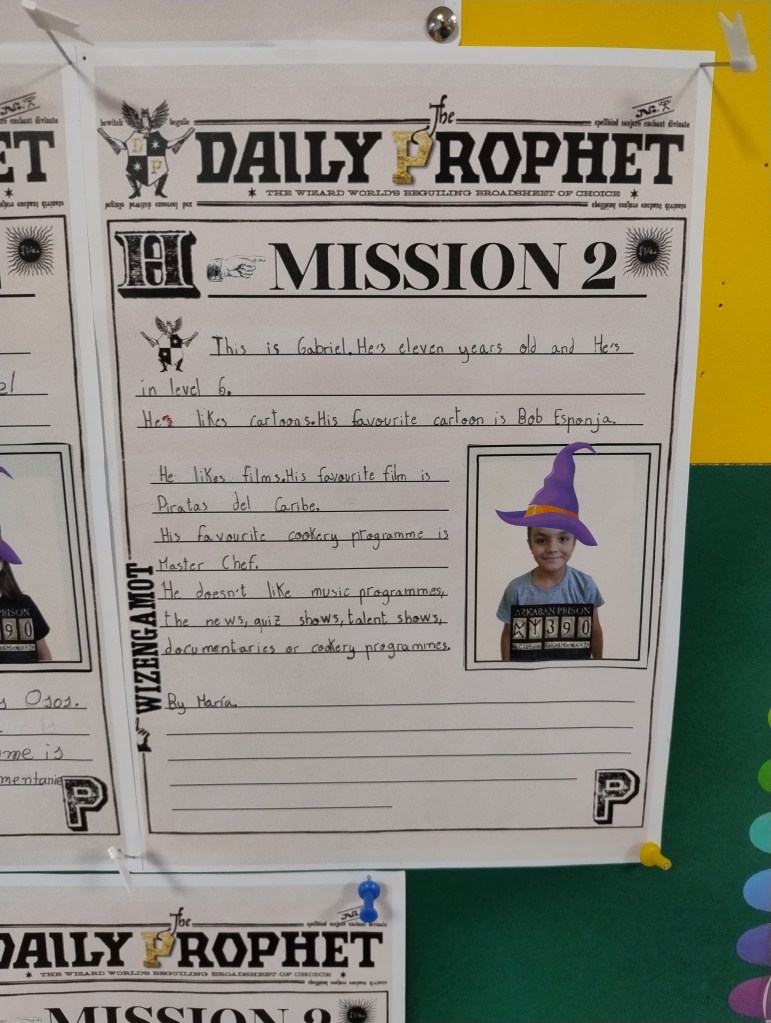 ET
el
PRISON
90
s Osos.
me is
mentanie
P
bewitch beguile
The
spellbind conjure enchant divinate
DAILY PROPHET
D P
★ THE WIZARD WORLD'S BEGUILING BROADSHEET OF CHOICE ★
H MISSION 2
This is Gabriel. He's eleven years old and He's
in level 6.
He's likes cartoons. His favourite cartoon is Bob Esponja.
He likes films. His favourite film is
Piratas del Caribe.
His favourite cookery programme is
Master Chef.
He doesn't like music programmes,
the news, quiz shows, talent shows,
documentaries or cookery programmes.
WIZENGAMOT
AZKABAN PRISON
390
By María.
P
The
DAILY PROPHET
THE WIZARD WORLD'S BEGUILING BROADSHEET OF CHOICE ★
MISSION 2